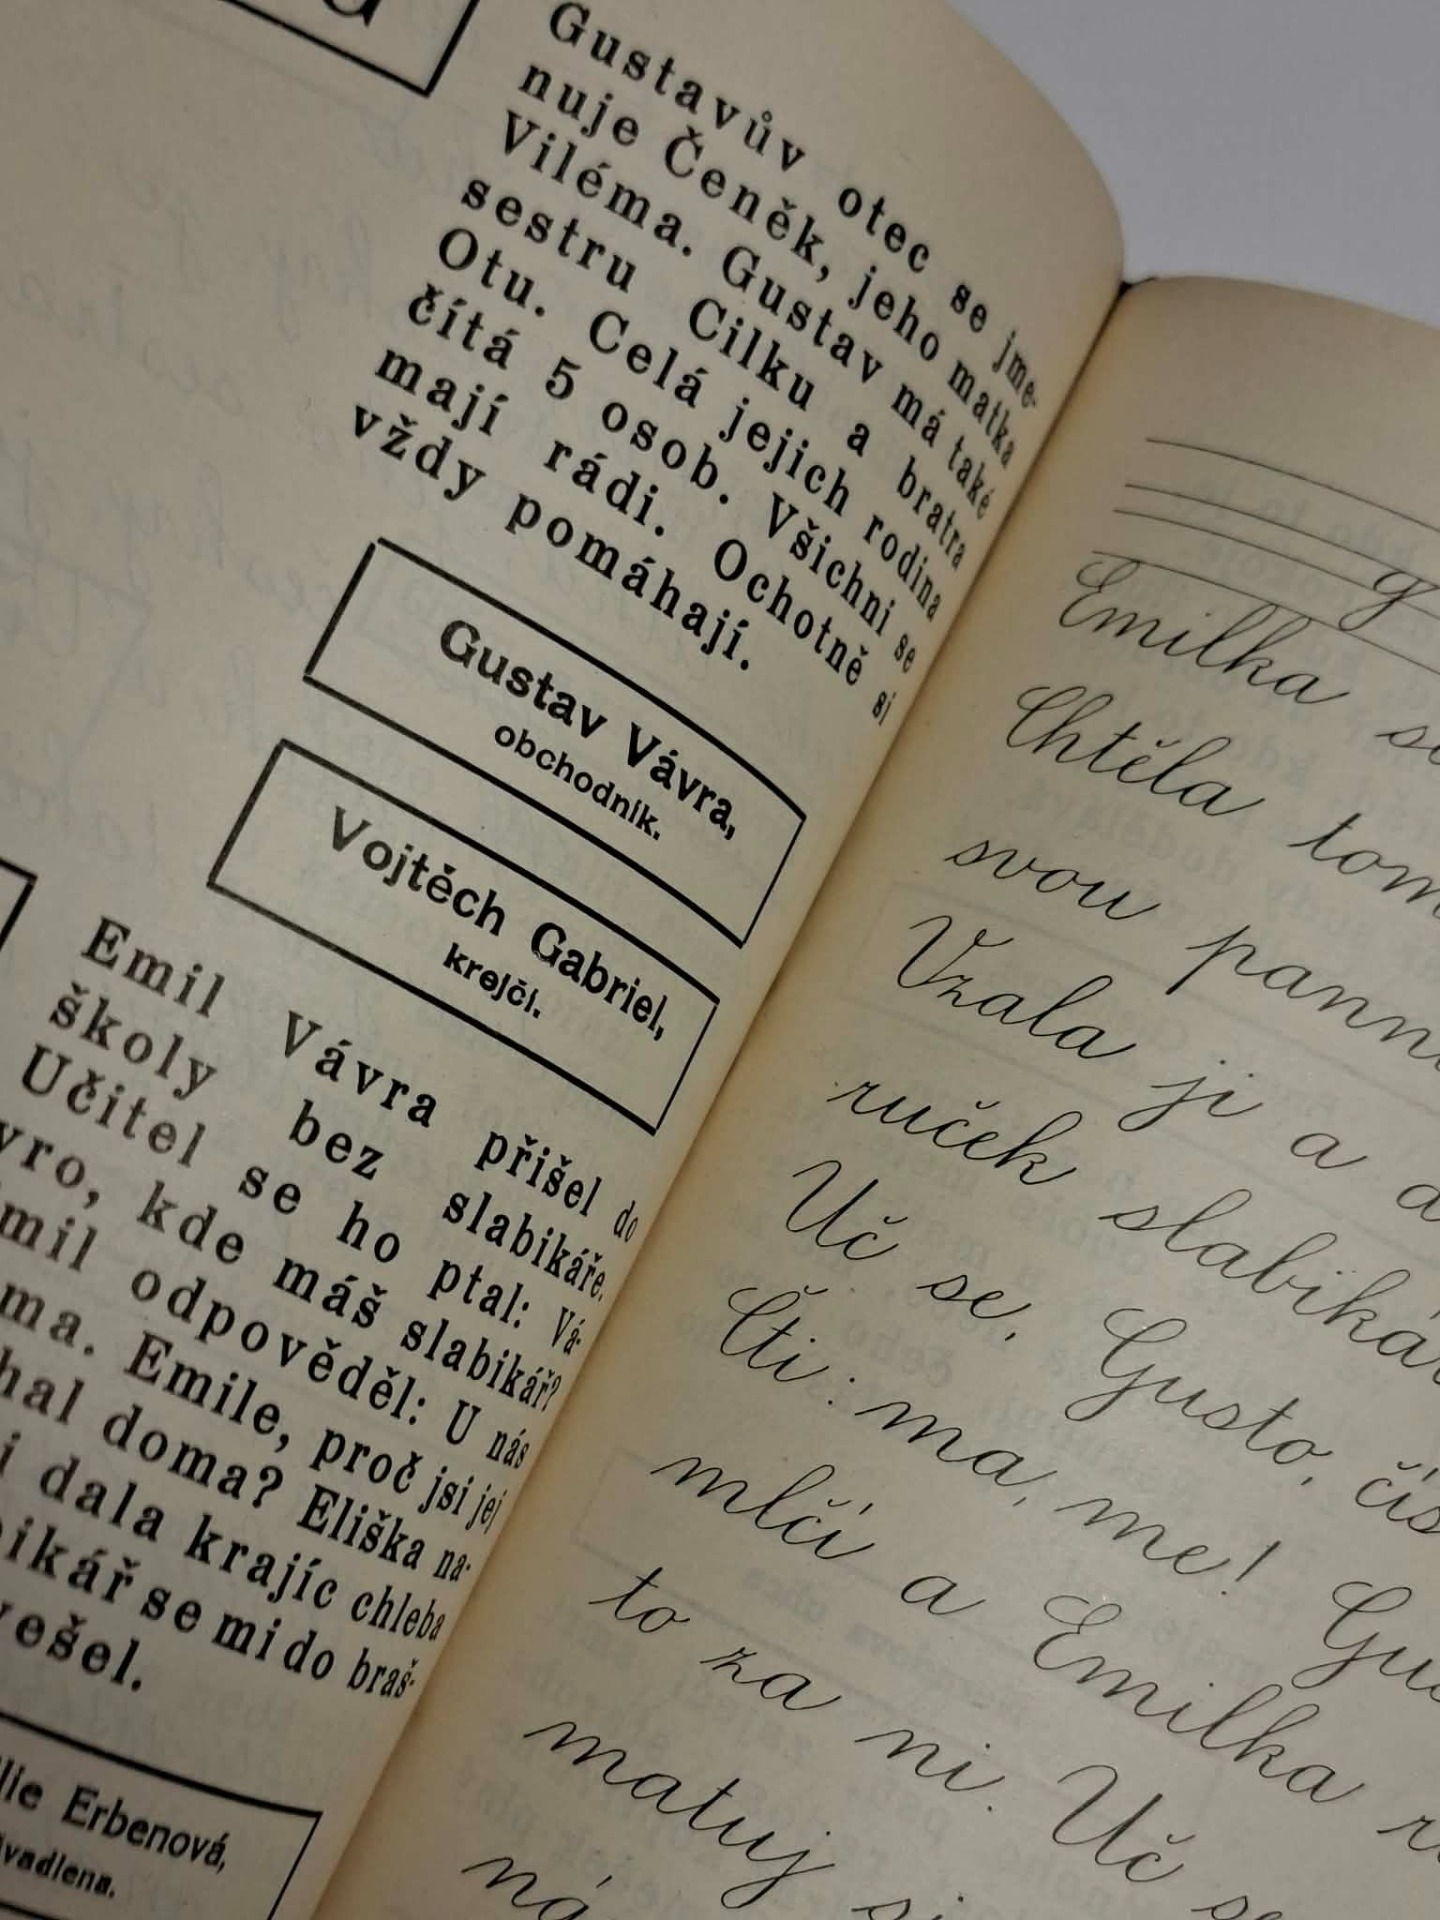 Gustavův otec se jme-
nuje Čeněk, jeho matka
Viléma. Gustav má také
sestru Cilku a bratra
Otu. Celá jejich rodina
čítá 5 osob. Všichni se
mají rádi. Ochotně si
vždy pomáhají.
Gustav Vávra,
obchodník.
Vojtěch Gabriel,
krejčí.
Emil Vávra přišel do
školy bez slabikáře.
Učitel se ho ptal: Vá-
vro, kde máš slabikář?
mil odpověděl: U nás
ma. Emile, proč jsi jej
hal doma? Eliška na-
i dala krajíc chleba
ikář se mi do braš-
vešel.
lie Erbenová,
švadlena.
g
Emilka s
Chtěla tom
svou pann
Vzala ji a d
ruček slabiká
Uč se, Gusto, čís
Čti: ma, me! Gu
mlčí a Emilka r
to za ni. Uč se
matuj si
ná